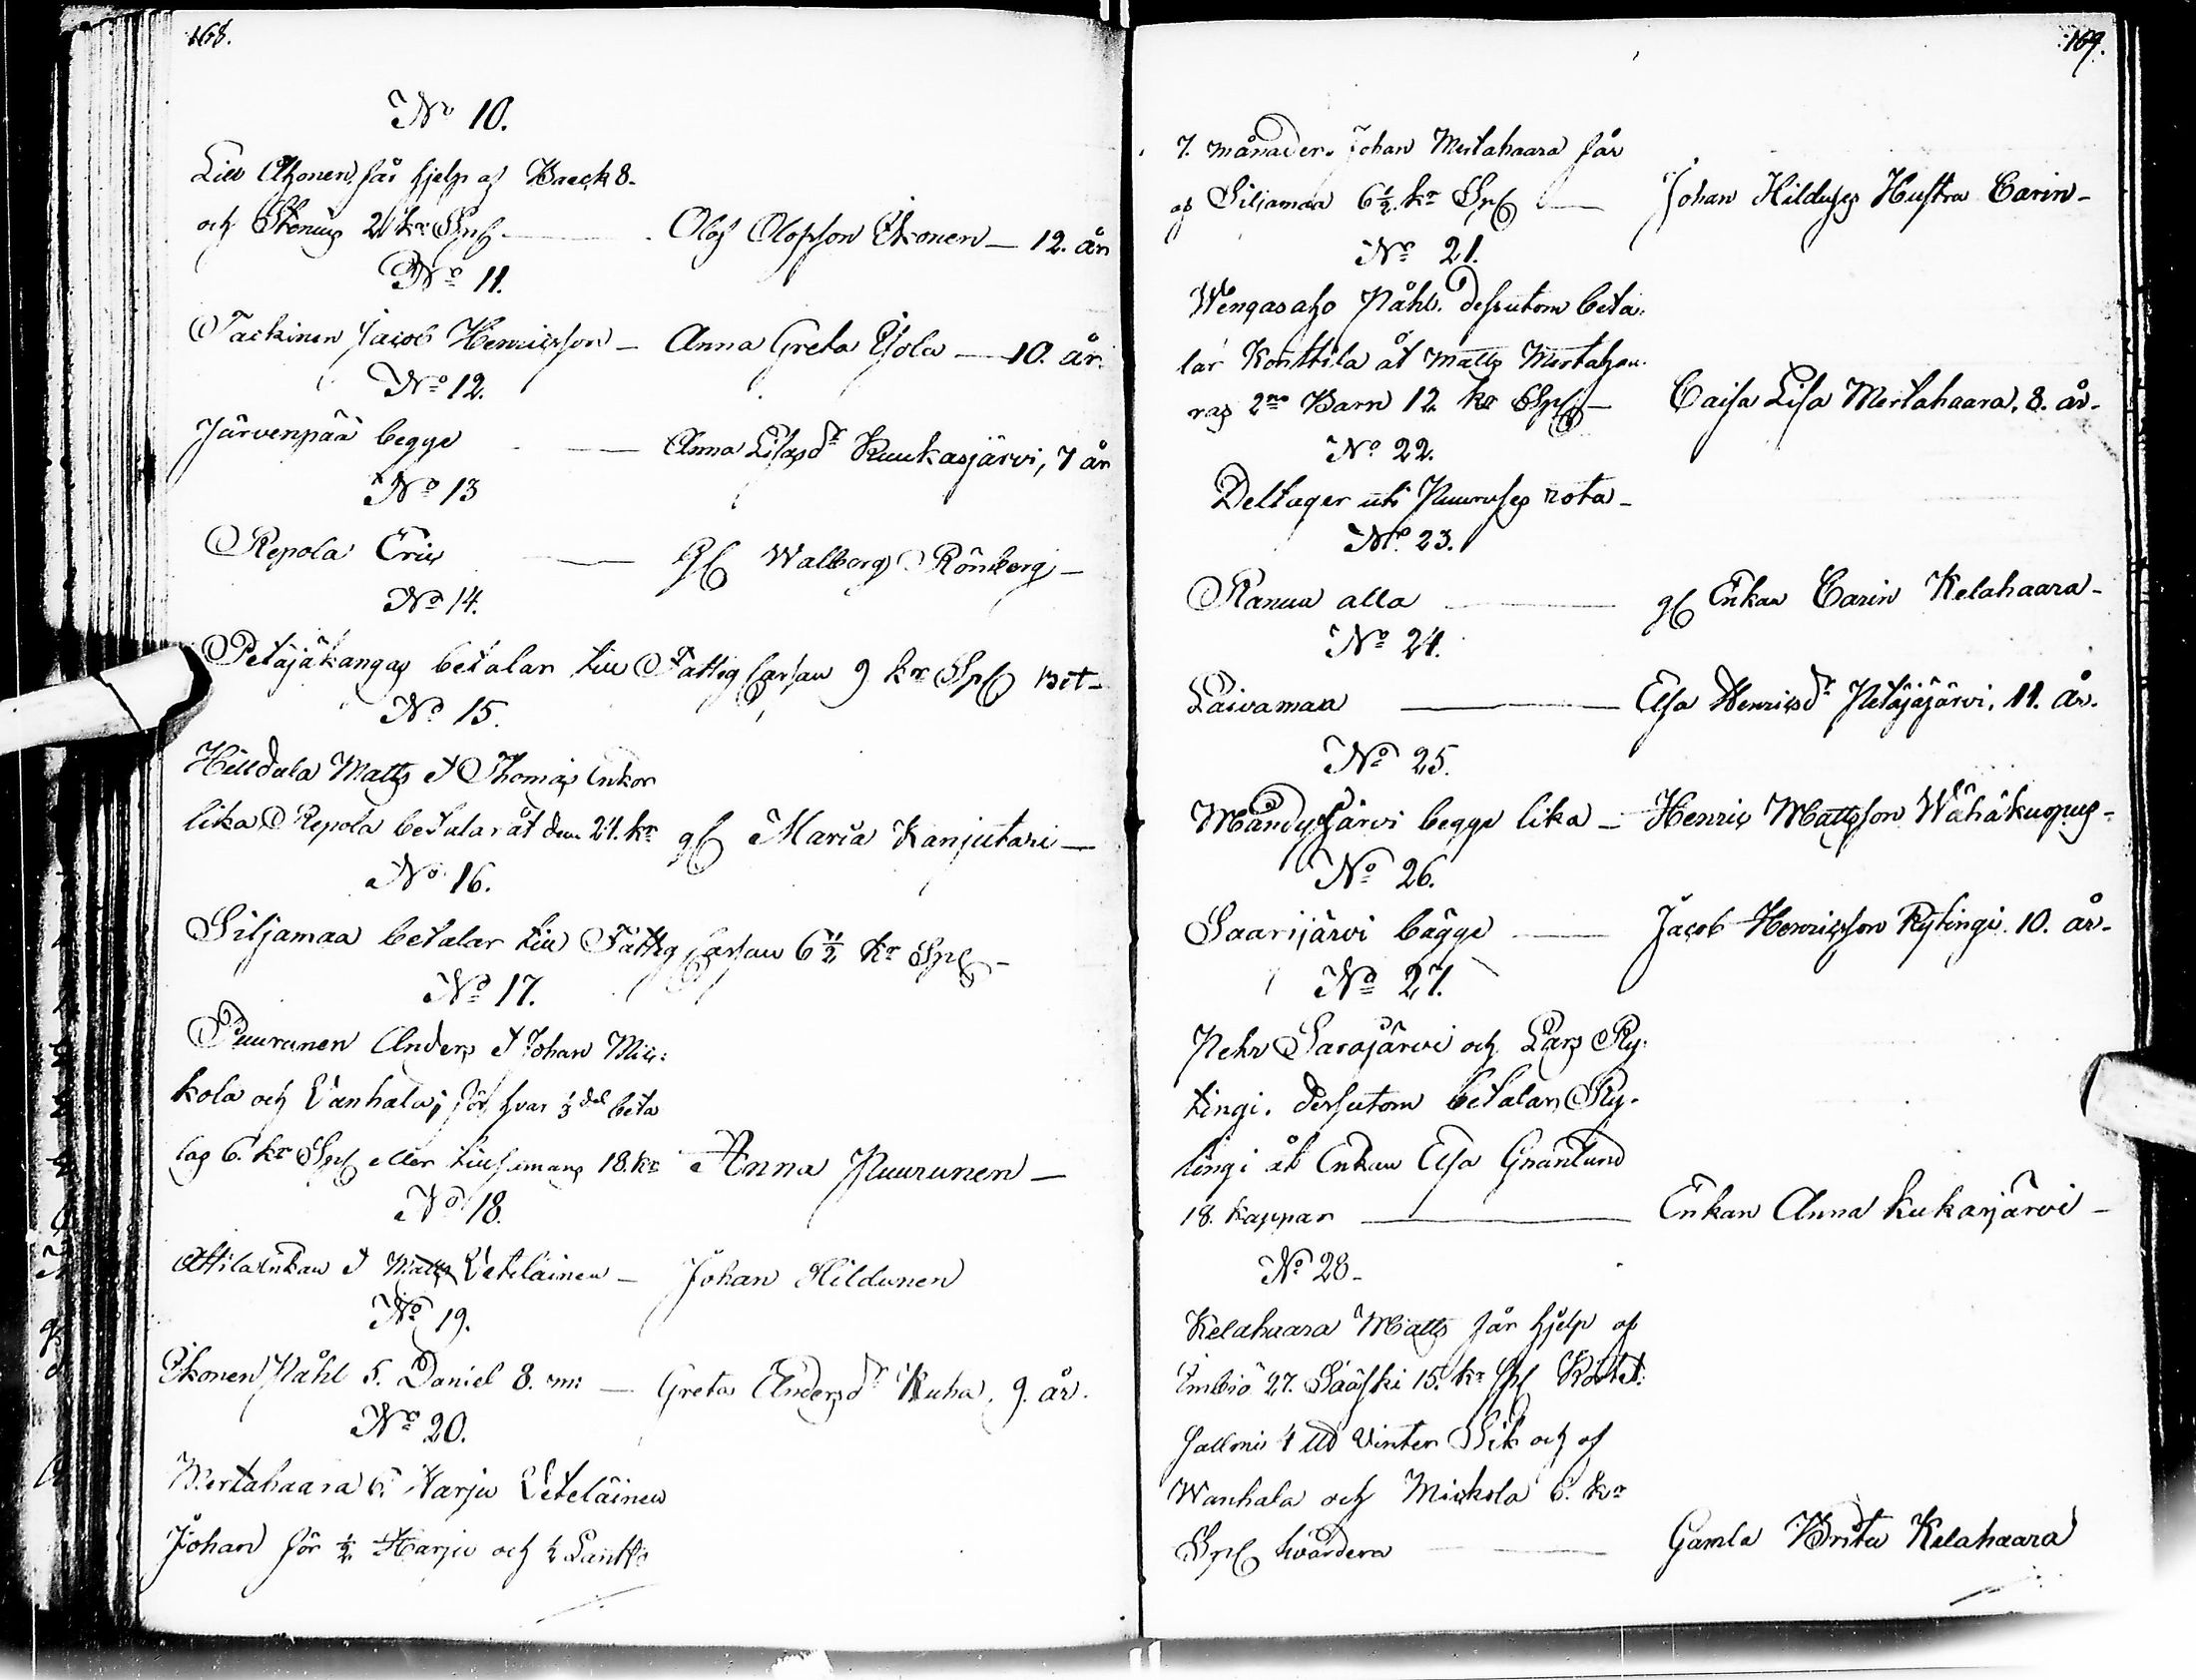 168.
No 10.
Lill Ikonen får hjelp af Baeck 8.
och 21 kr Spl
Olof Olofson Ikonen 12. år
No 11.
Tackinen Jacob Henricsson
Anna Greta 10. år
No 12.
Järvenpää begge
Anna Lisasdr Kuukasjärvi, 7 år
No 13
Repola Eric
gl Walborg Rönberg
No 14.
Petäjäkangas betalar till Fattig Cassan 9 kr Spl
No 15.
Hilldula Matts & Thomas Enkor
lika Repola betalar åt dem 24. kr
gl Maria Kanjutari
No 16.
Siljamaa betalar till Fattig Cassan 6½ kr Spl
No 17.
Puurunen Anders & Johan Mic:
kola och Vanhala; för hvar ⅓del beta
las 6. kr Spl eller tillsamans 18. kr
Anna Puurunen
No 18.
Attila Enkan & Matts Veteläinen
Johan Hildunen
No 19.
Ikonen Påhl 5. Daniel 8. m:
Greta Andersdr Kuha. 9. år.
No 20.
Mertahaara 6. Harju Veteläinen
Johan för ½ Harju och ½ Lantto
169.
7. månader. Johan Mertahaara får
af Siljamaa 6½ kr Spl
Johan Hilduses Hustru Carin
No 21.
Wengasaho Påhl. dessutom beta:
lar Konttila åt Matts Mertahaa:
ras 2ne Barn 12 kr Spl
Caisa Lisa Mertahaara. 8. år.
No 22.
Deltager uti Puuruses rota
No 23.
Ranua alla
gl Enkan Carin Kelahaara
No 24.
Läivamaa
Elsa Henricsdr Petäjäjärvi. 11. år.
No 25.
Mändyjärvi begge lika
Henric Mattsson Wähäkuopus
No 26.
Saarijärvi bägge
Jacob Henricsson Rytingi. 10. år.
No 27.
Pehr Sarajärvi och Lars Ry:
tingi. dessutom betalar Ry:
tingi åt Enkan Elsa Granlund
18. kappar
Enkan Anna Kukasjärvi
No 28
Kelahaara Matts får hjelp af
Imbiö 27. Sääski 15. kr Spl
4 Vinter Sik och af
Wanhala och Mickola 6. kr
Spl hvardera
Gamla Brita Kelahaara